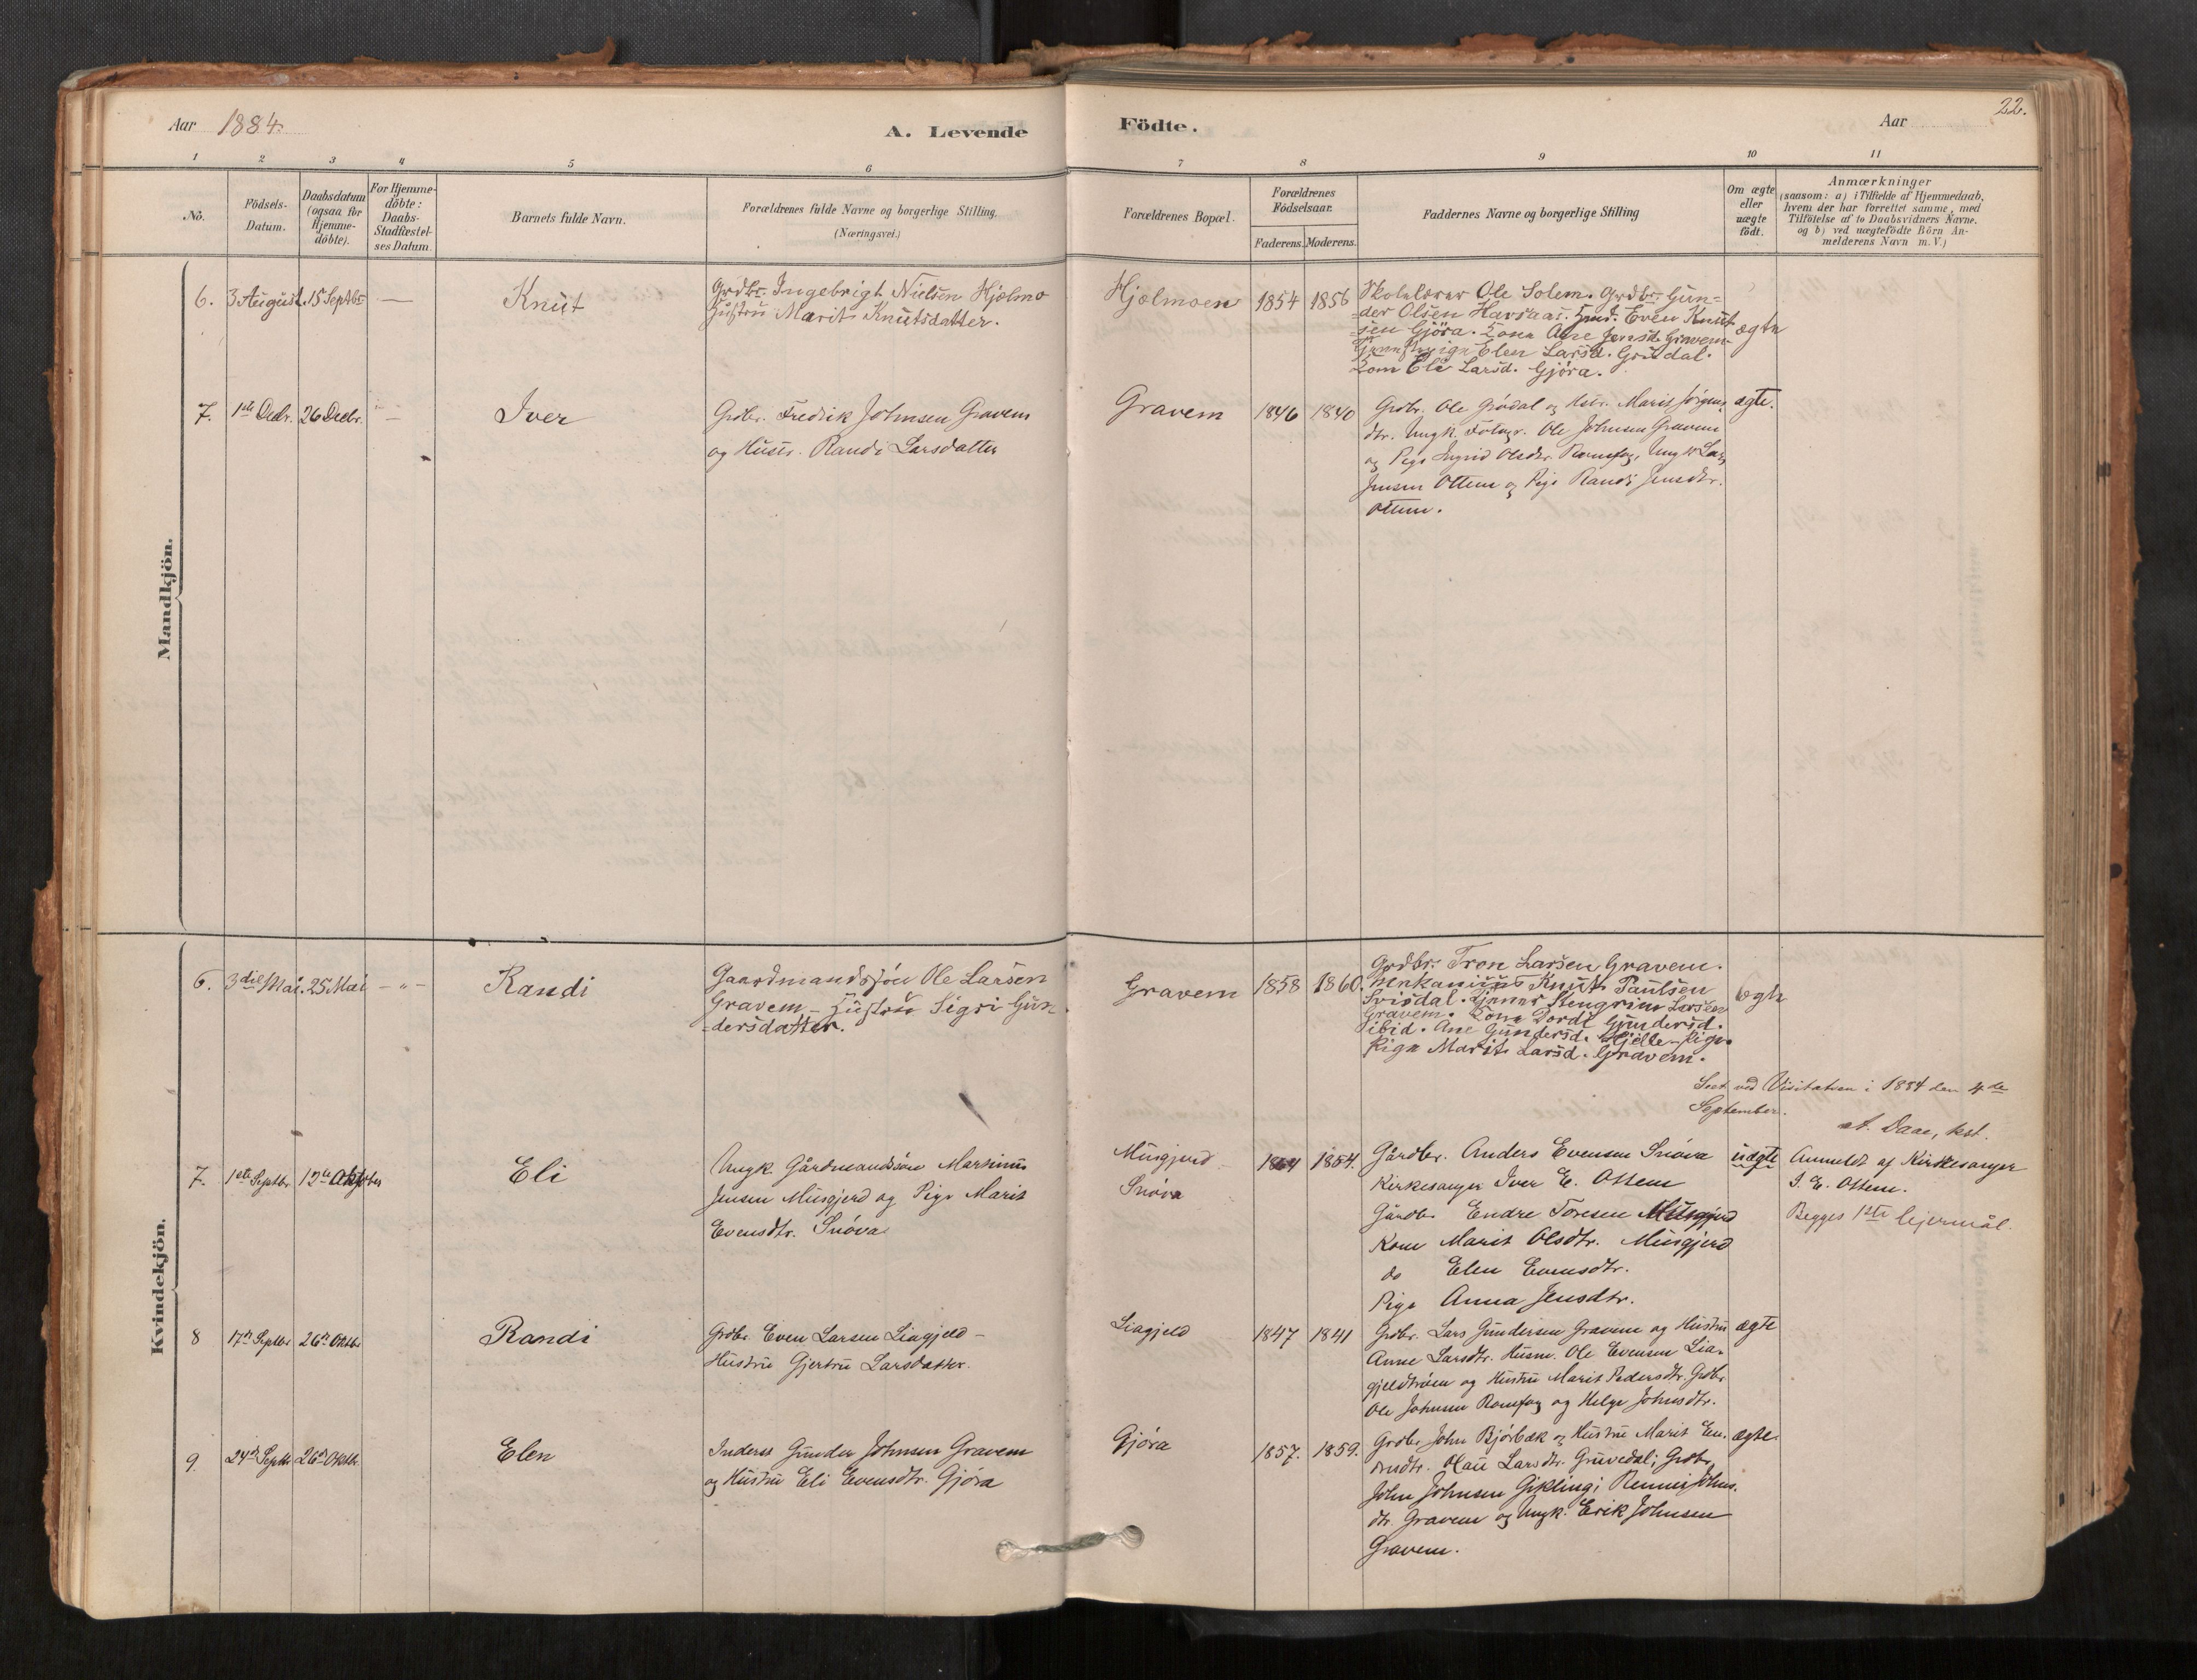 Aar 1884.
A. Levende
Födte.
Aar
22.
1 2 3 4 5 6 7 8 9 10 11
No.
Födsels-
Datum.
Daabsdatum
(ogsaa for
Hjemme-
döbte).
For Hjemme-
döbte:
Daabs-
Stadfæstel-
ses Datum.
Barnets fulde Navn.
Forældrenes fulde Navne og borgerlige Stilling.
(Næringsvei.)
Forældrenes Bopæl.
Forældrenes
Födselsaar.
Faderens. Moderens.
Faddernes Navne og borgerlige Stilling
Om ægte
eller
uægte
födt.
Anmærkninger
(saasom: a) i Tilfælde af Hjemmedaab,
hvem der har forrettet samme, med
Tilföielse af to Daabsvidners Navne,
og b) ved uægtefödte Börn An-
melderens Navn m. V.)
Mandkjön.
6. 3 August. 15 Septbr — Knut
Grdbr. Ingebrigt Nielsen Hjælmo
Hustru Marit Knutsdatter.
Hjælmoen 1854 1856
Skolelærer Ole Solem. Grdbr. Gun=
=der Olsen Havsaas. Even Knut
sen Gjöra. Kone Ane Jensd. Gravem
Elen Larsd. Grüdal.
Kone Eli Larsd. Gjöra.
ægte
7. 1ste Decbr. 26 Decbr. — Iver
Grdbr. Fredrik Johnsen Gravem
og Hustr. Randi Larsdatter
Gravem 1846 1840
Grdbr. Ole Grödal og Hstr. Marit Jörgens
dtr. Ungk. Ole Johnsen Gravem
og Pige Ingrid Olsdtr. Romfog, Ungk Lars
Jensen Ottem og Pige Randi Jensdtr.
Ottem.
ægte.
Kvindekjön.
6. 3die Mai. 25 Mai — " — Randi
Gaardmandssön Ole Larsen
Gravem — Hustru Sigri Gun
=dersdatter.
Gravem 1858 1860.
Grdbr. Tron Larsen Gravem.
Mekanikus Knut Paulsen
Svisdal. Stengrim Larsen
Gravem. Kone Dordi Gundersd.
ibid. Ane Gundersd. Hjelle - Pige
Pige Marit Larsd. Gravem.
ægte
Seet ved Visitatsen i 1884 den 4de
September.
A. Daae, kst.
7. 1ste Septbr. 12te Oktober Eli
Ungk. Gårdmandssön Martinus
Jensen Musgjerd og Pige Marit
Evensdtr. Snöva
Musgjerd
Snöva
1854.
Gårdbr. Anders Evensen Snöva
Kirkesanger Iver E. Ottem
Gårdbr. Endre Toresen Musgjerd
Kone Marit Olsdtr. Musgjerd
do Elen Evensdtr.
Pige Anna Jensdtr.
uægte
Anmeldt af Kirkesanger
I. E. Ottem.
Begges 1ste lejermål.
8 17de Septbr 26de Oktbr Randi
Grdbr. Even Larsen Liagjeld —
Hustru Gjertru Larsdatter.
Liagjeld 1847 1841
Grdbr. Lars Gundersen Gravem og Hustru
Anne Larsdtr. Husm. Ole Evensen Lia-
gjeldtröen og Hustru Marit Pedersdtr. Grdbr.
Ole Johnsen Romfog og Helge Johnsdtr.
ægte
9. 24de Septbr 26de Oktbr. Elen
Inderst Gunder Johnsen Gravem
og Hustru Eli Evensdtr. Gjöra
Gjöra 1857. 1859.
Grdbr. John Björbæk og Hustru Marit
Larsdtr. Gruvedal; Grdbr.
John Johnsen Gikling; Johns.
dtr. Gravem og Ungk. Erik Johnsen
Gravem.
ægte.